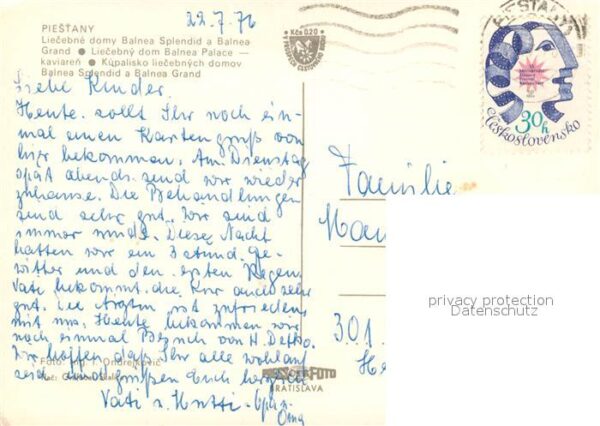 22.7.76
PIEŠŤANY
Liečebné domy Balnea Splendid a Balnea
Grand ● Liečebný dom Balnea Palace —
kaviareň ● Kúpalisko liečebných domov
Balnea Splendid a Balnea Grand
Kčs 0,20
PIEŠŤANY
30h
Československo
Liebe Kinder.
Heute sollt Ihr noch ein-
mal einen Kartengruß von
hier bekommen. Am Dienstag
spät abends sind wir wieder
zuhause. Die Behandlungen
sind sehr gut. Wir sind
immer müde. Diese Nacht
hatten wir ein Ge-
witter und den ersten Regen.
Vati bekommt die Kur auch sehr
gut. Die Ärztin ist zufrieden
mit uns. Heute bekommen wir
noch einmal Besuch von H.
Wir hoffen daß Ihr alle wohlauf
seid und grüßen Euch herzlich
Vati u. Mutti - Opa u.
Oma
Foto: Ing. T. Ondrejkovič
PRESSFOTO
BRATISLAVA
Familie
301
privacy protection
Datenschutz